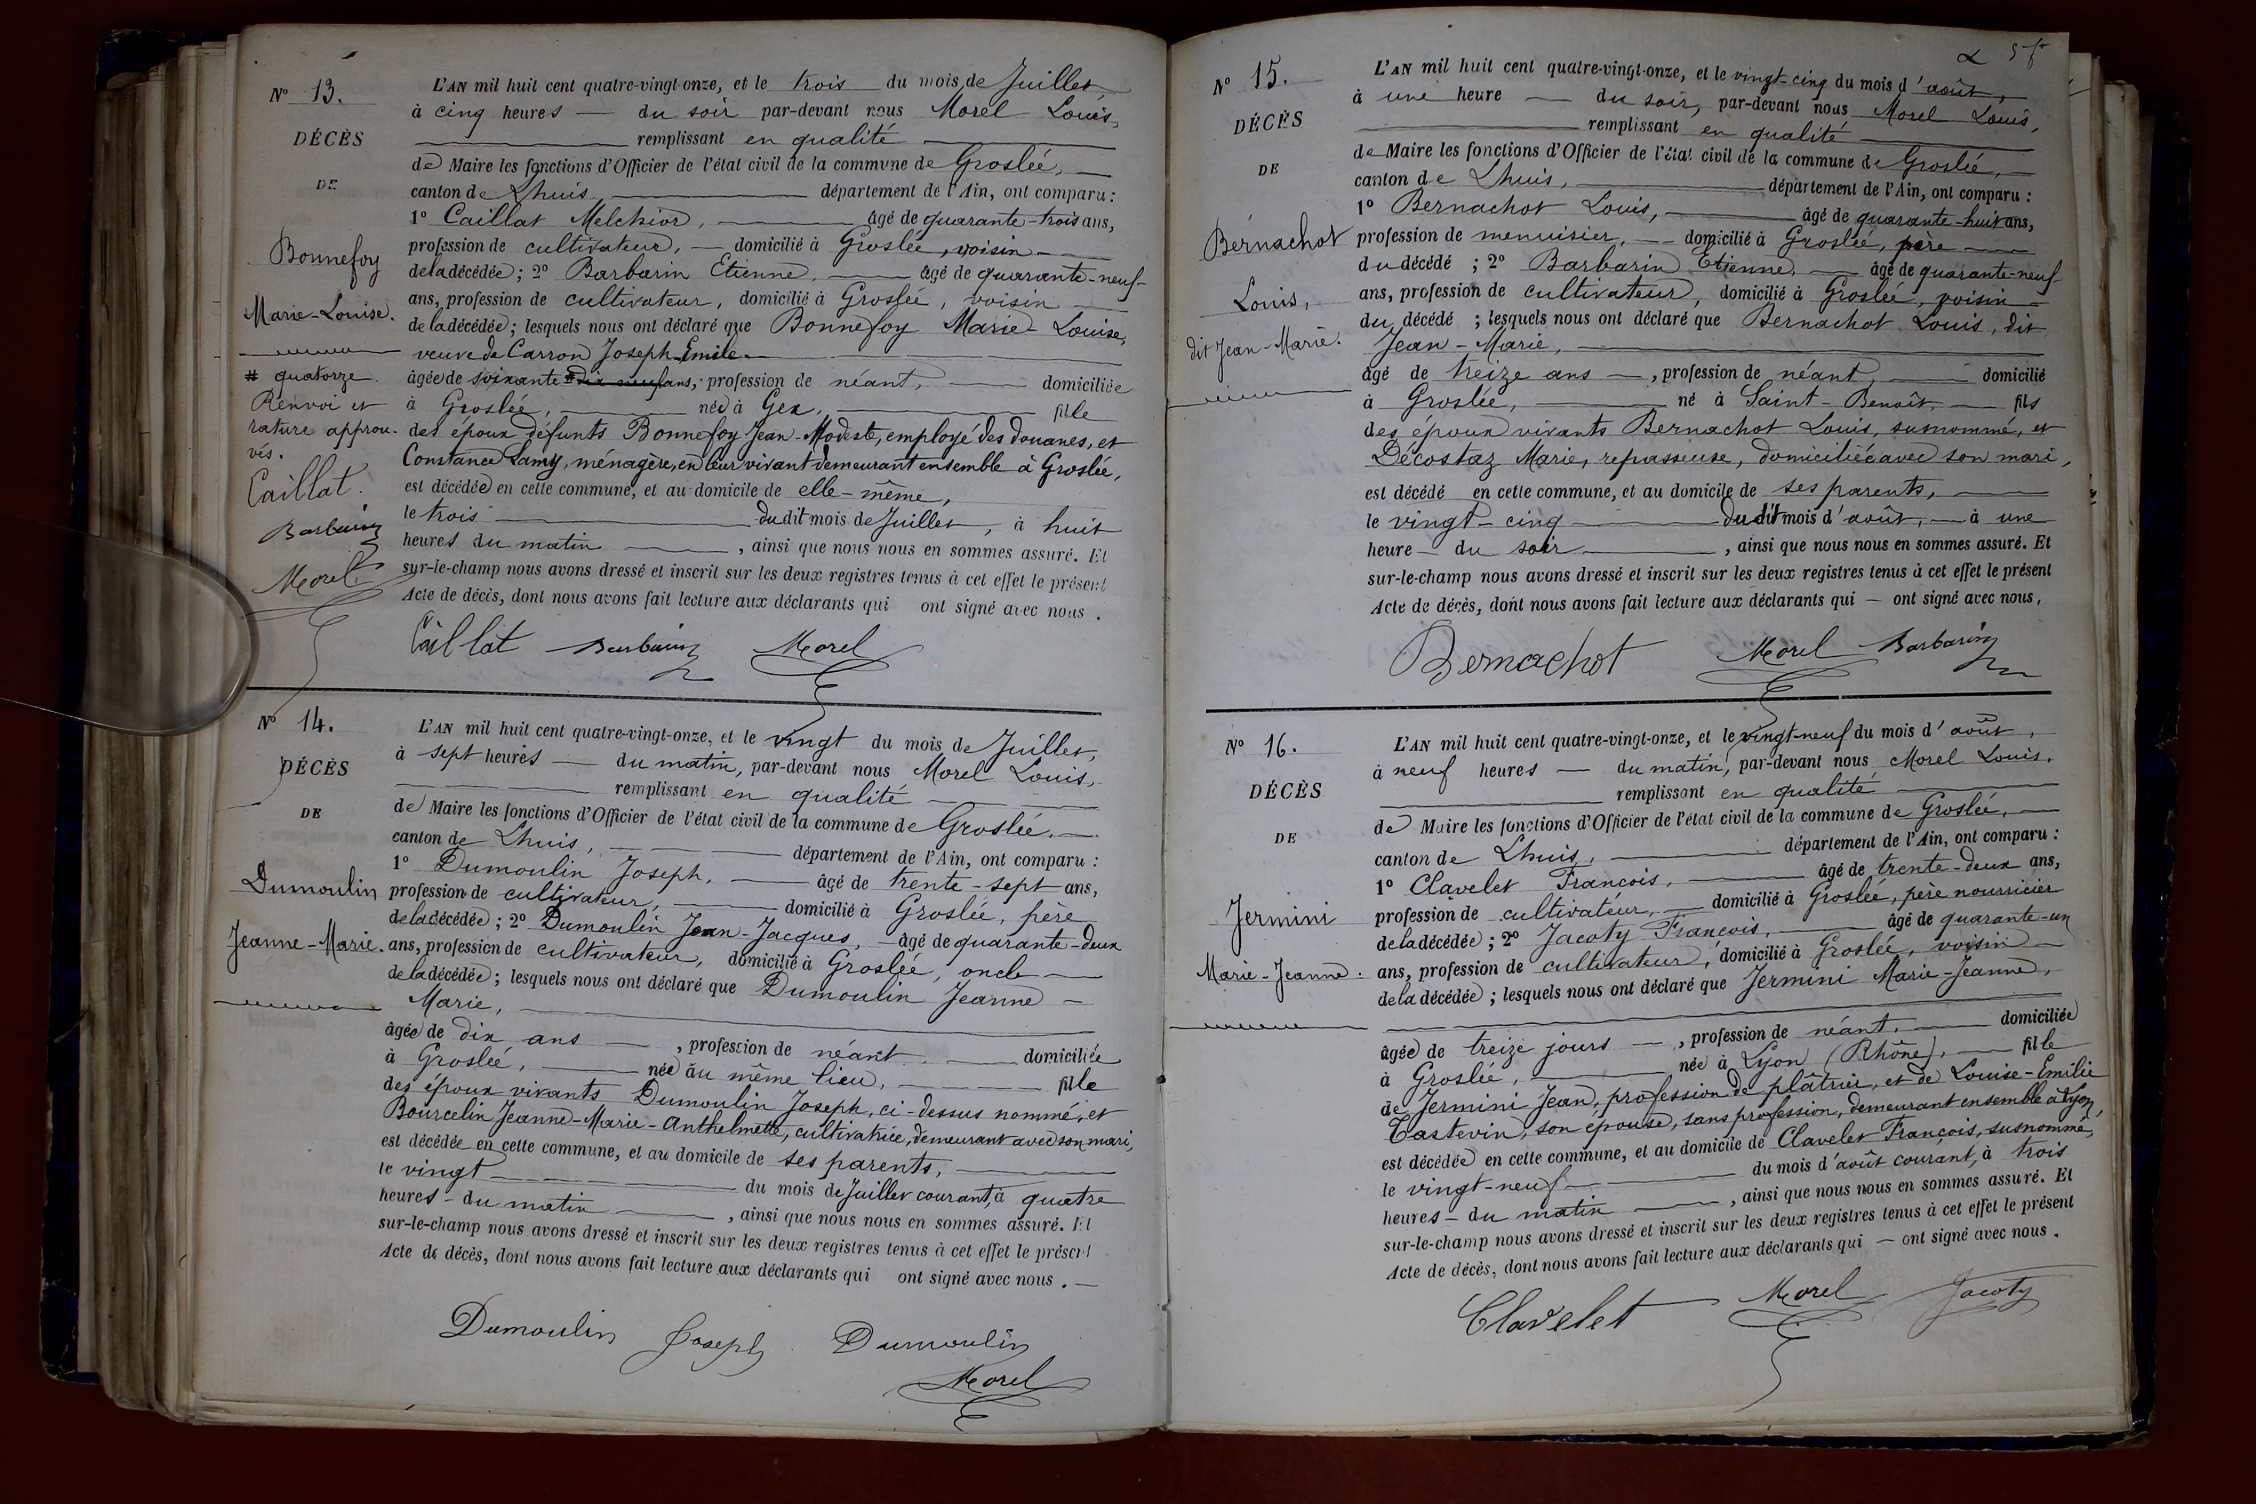 N° 13.
DÉCÈS
DE
Bonnefoy
Marie-Louise.
# quatorze.
Renvoi et
rature approu-
vés.
Caillat.
Barbarin
Morel
L'AN mil huit cent quatre-vingt-onze, et le trois du mois de Juillet,
à cinq heures — du soir par-devant nous Morel Louis,
remplissant en qualité
de Maire les fonctions d'Officier de l'état civil de la commune de Groslée,
canton de Lhuis, département de l'Ain, ont comparu :
1° Caillat Melchior, âgé de quarante-trois ans,
profession de cultivateur, — domicilié à Groslée, voisin
de la décédée ; 2° Barbarin Etienne, âgé de quarante-neuf
ans, profession de cultivateur, domicilié à Groslée, voisin
de la décédée ; lesquels nous ont déclaré que Bonnefoy Marie-Louise,
veuve de Carron Joseph-Emile.
âgée de soixante # dix neuf ans, profession de néant, domiciliée
à Groslée, née à Gex, fille
des époux défunts Bonnefoy Jean-Modeste, employé des douanes, et
Constance Lamy, ménagère, en leur vivant demeurant ensemble à Groslée,
est décédée en cette commune, et au domicile de elle-même,
le trois du dit mois de Juillet, à huit
heures du matin, ainsi que nous nous en sommes assuré. Et
sur-le-champ nous avons dressé et inscrit sur les deux registres tenus à cet effet le présent
Acte de décès, dont nous avons fait lecture aux déclarants qui ont signé avec nous.
Caillat Barbarin Morel
N° 14.
DÉCÈS
DE
Dumoulin
Jeanne-Marie.
L'AN mil huit cent quatre-vingt-onze, et le vingt du mois de Juillet,
à sept heures — du matin, par-devant nous Morel Louis,
remplissant en qualité
de Maire les fonctions d'Officier de l'état civil de la commune de Groslée,
canton de Lhuis, département de l'Ain, ont comparu :
1° Dumoulin Joseph, âgé de trente-sept ans,
profession de cultivateur, domicilié à Groslée, père
de la décédée ; 2° Dumoulin Jean-Jacques, — âgé de quarante-deux
ans, profession de cultivateur, domicilié à Groslée, oncle
de la décédée ; lesquels nous ont déclaré que Dumoulin Jeanne -
Marie,
âgée de dix ans — , profession de néant. domiciliée
à Groslée, née au même lieu, fille
des époux vivants Dumoulin Joseph, ci-dessus nommé, et
Bourcelin Jeanne-Marie-Anthelmette, cultivatrice, demeurant avec son mari,
est décédée en cette commune, et au domicile de ses parents,
le vingt du mois de Juillet courant, à quatre
heures - du matin, ainsi que nous nous en sommes assuré. Et
sur-le-champ nous avons dressé et inscrit sur les deux registres tenus à cet effet le présent
Acte de décès, dont nous avons fait lecture aux déclarants qui ont signé avec nous. —
Dumoulin Joseph Dumoulin
Morel
N° 15.
DÉCÈS
DE
Bernachot
Louis,
dit Jean-Marie.
L'AN mil huit cent quatre-vingt-onze, et le vingt-cinq du mois d'août,
à une heure — du soir, par-devant nous Morel Louis,
remplissant en qualité
de Maire les fonctions d'Officier de l'état civil de la commune de Groslée,
canton de Lhuis, département de l'Ain, ont comparu :
1° Bernachot Louis, âgé de quarante-huit ans,
profession de menuisier, — domicilié à Groslée, père
du décédé ; 2° Barbarin Etienne, âgé de quarante-neuf
ans, profession de cultivateur, domicilié à Groslée, voisin
du décédé ; lesquels nous ont déclaré que Bernachot Louis, dit
Jean-Marie,
âgé de treize ans — , profession de néant, domicilié
à Groslée, né à Saint-Benoît, fils
des époux vivants Bernachot Louis, susnommé, et
Décostaz Marie, repasseuse, domiciliée avec son mari,
est décédé en cette commune, et au domicile de ses parents,
le vingt-cinq du dit mois d'août, — à une
heure — du soir, ainsi que nous nous en sommes assuré. Et
sur-le-champ nous avons dressé et inscrit sur les deux registres tenus à cet effet le présent
Acte de décès, dont nous avons fait lecture aux déclarants qui — ont signé avec nous,
Bernachot Morel Barbarin
N° 16.
DÉCÈS
DE
Jermini
Marie-Jeanne.
L'AN mil huit cent quatre-vingt-onze, et le vingt-neuf du mois d'août,
à neuf heures — du matin, par-devant nous Morel Louis,
remplissant en qualité
de Maire les fonctions d'Officier de l'état civil de la commune de Groslée,
canton de Lhuis, département de l'Ain, ont comparu :
1° Clavelet François, âgé de trente-deux ans,
profession de cultivateur, — domicilié à Groslée, père nourricier
de la décédée ; 2° Jacoty François, âgé de quarante-un
ans, profession de cultivateur, domicilié à Groslée, voisin
de la décédée ; lesquels nous ont déclaré que Jermini Marie-Jeanne,
âgée de treize jours — , profession de néant, domiciliée
à Groslée, née à Lyon (Rhône), fille
de Jermini Jean, profession de plâtrier, et de Louise-Emilie
Tastevin, son épouse, sans profession, demeurant ensemble à Lyon,
est décédée en cette commune, et au domicile de Clavelet François, susnommé,
le vingt-neuf du mois d'août courant, à trois
heures — du matin, ainsi que nous nous en sommes assuré. Et
sur-le-champ nous avons dressé et inscrit sur les deux registres tenus à cet effet le présent
Acte de décès, dont nous avons fait lecture aux déclarants qui — ont signé avec nous.
Clavelet Morel Jacoty